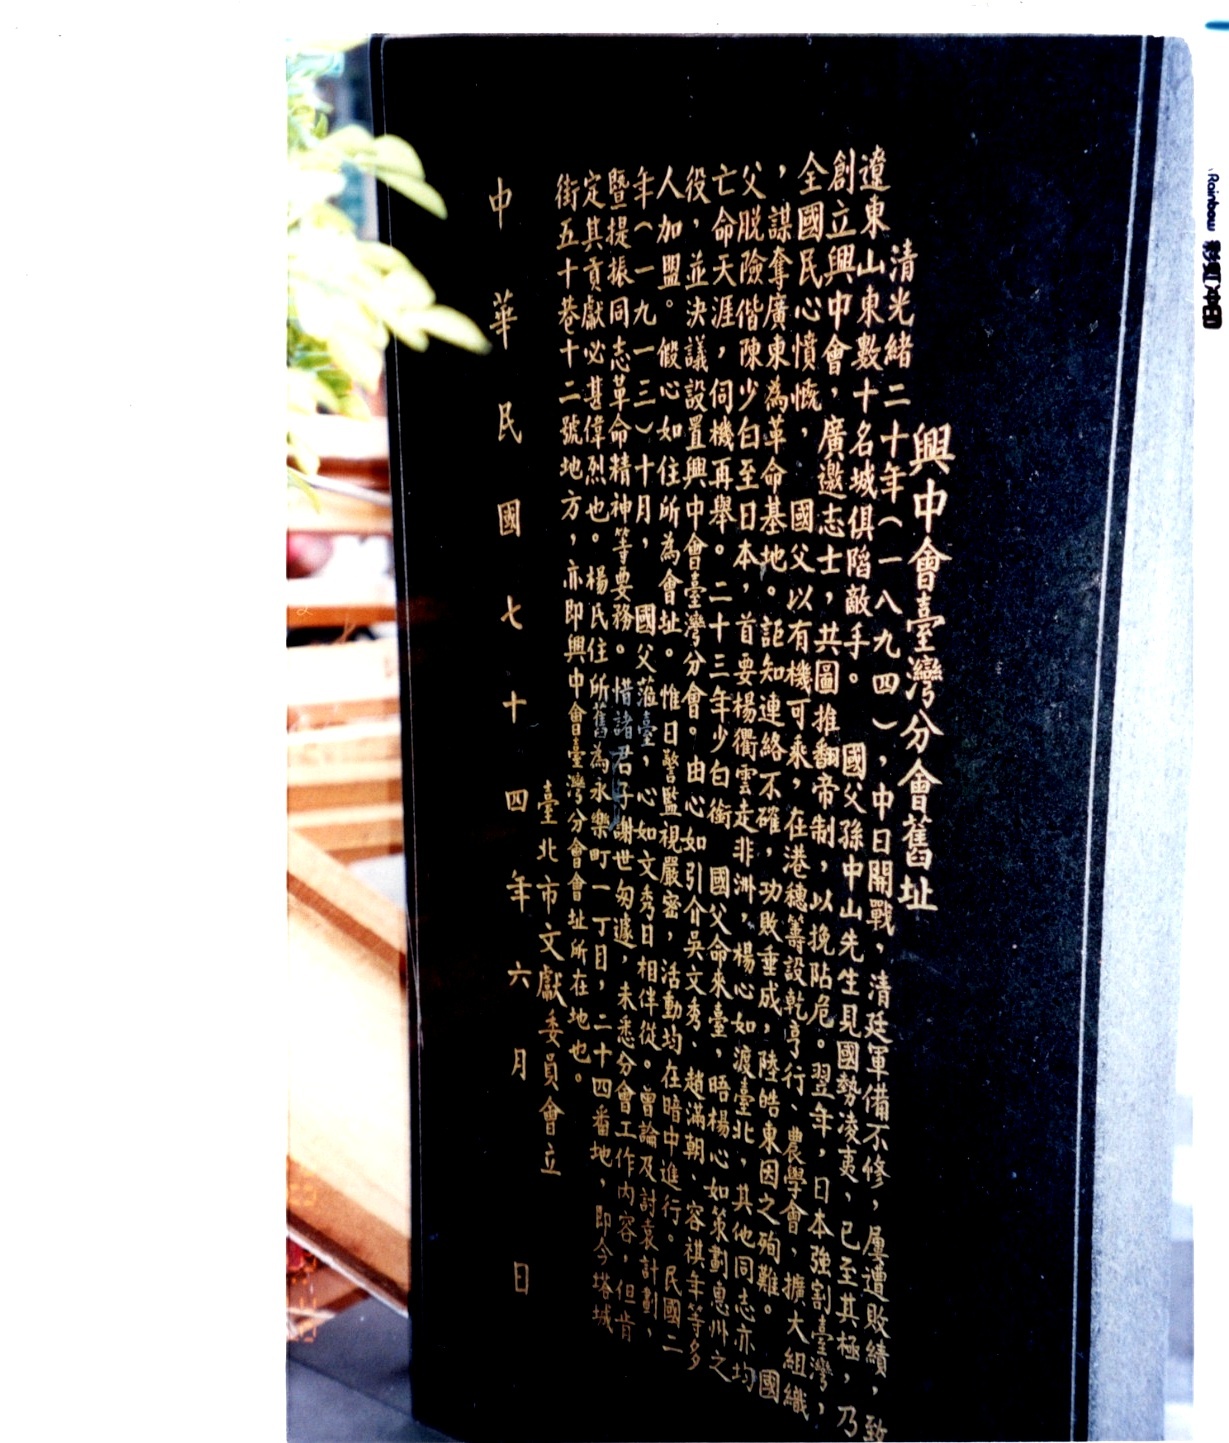 興中會臺灣分會舊址
清光緒二十年（一八九四），中日開戰，清廷軍備不修，屢遭敗績，致
遼東山東數十名城俱陷敵手。　國父孫中山先生見國勢凌夷，已至其極，乃
創立興中會，廣邀志士，共圖推翻帝制，以挽阽危。翌年，日本強割臺灣，
全國民心憤慨，　國父以有機可乘，在港穗籌設乾亨行、農學會，擴大組織
，謀奪廣東為革命基地。詎知連絡不確，功敗垂成，陸皓東因之殉難。　國
父脫險偕陳少白至日本，首要楊衢雲走非洲，楊心如渡臺北，其他同志亦均
亡命天涯，伺機再舉。二十三年少白銜　國父命來臺，晤楊心如策劃惠州之
役，並決議設置興中會臺灣分會。由心如引介吳文秀、趙滿朝、容祺年等多
人加盟。假心如住所為會址。惟日警監視嚴密，活動均在暗中進行。民國二
年（一九一三）十月，　國父蒞臺，心如文秀日相伴從。曾論及討袁計劃，
暨提振同志革命精神等要務。惜諸君子謝世匆遽，未悉分會工作內容，但肯
定其貢獻必甚偉烈也。楊氏住所舊為永樂町一丁目，二十四番地，即今塔城
街五十巷十二號地方，亦即興中會臺灣分會會址所在地也。
臺北市文獻委員會立
中華民國七十四年六月　日
Rainbow 彩虹沖印